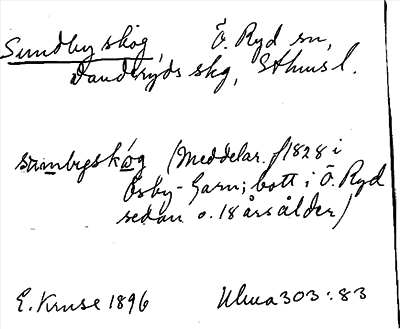 Sundby skog, Ö. Ryd sn,
Danderyds skg, Sthms l.
sumbyskóg (Meddelar. f 1828 i
Össby-Garn; bott i Ö. Ryd
sedan o. 18 årsålder)
E. Kruse 1896 Ulma 303:83